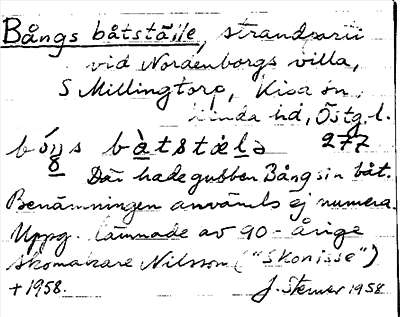 Bångs båtställe, strandparti
vid Nordenborgs villa,
S Millingtorp, Kisa sn,
Kinda hd, Östg. l.
277
Där hade gubben Bång sin båt.
Benämningen används ej numera.
Uppg. lämnade av 90-årige
skomakare Nilsson ("Skonisse")
+1958. J. Sterner 1958